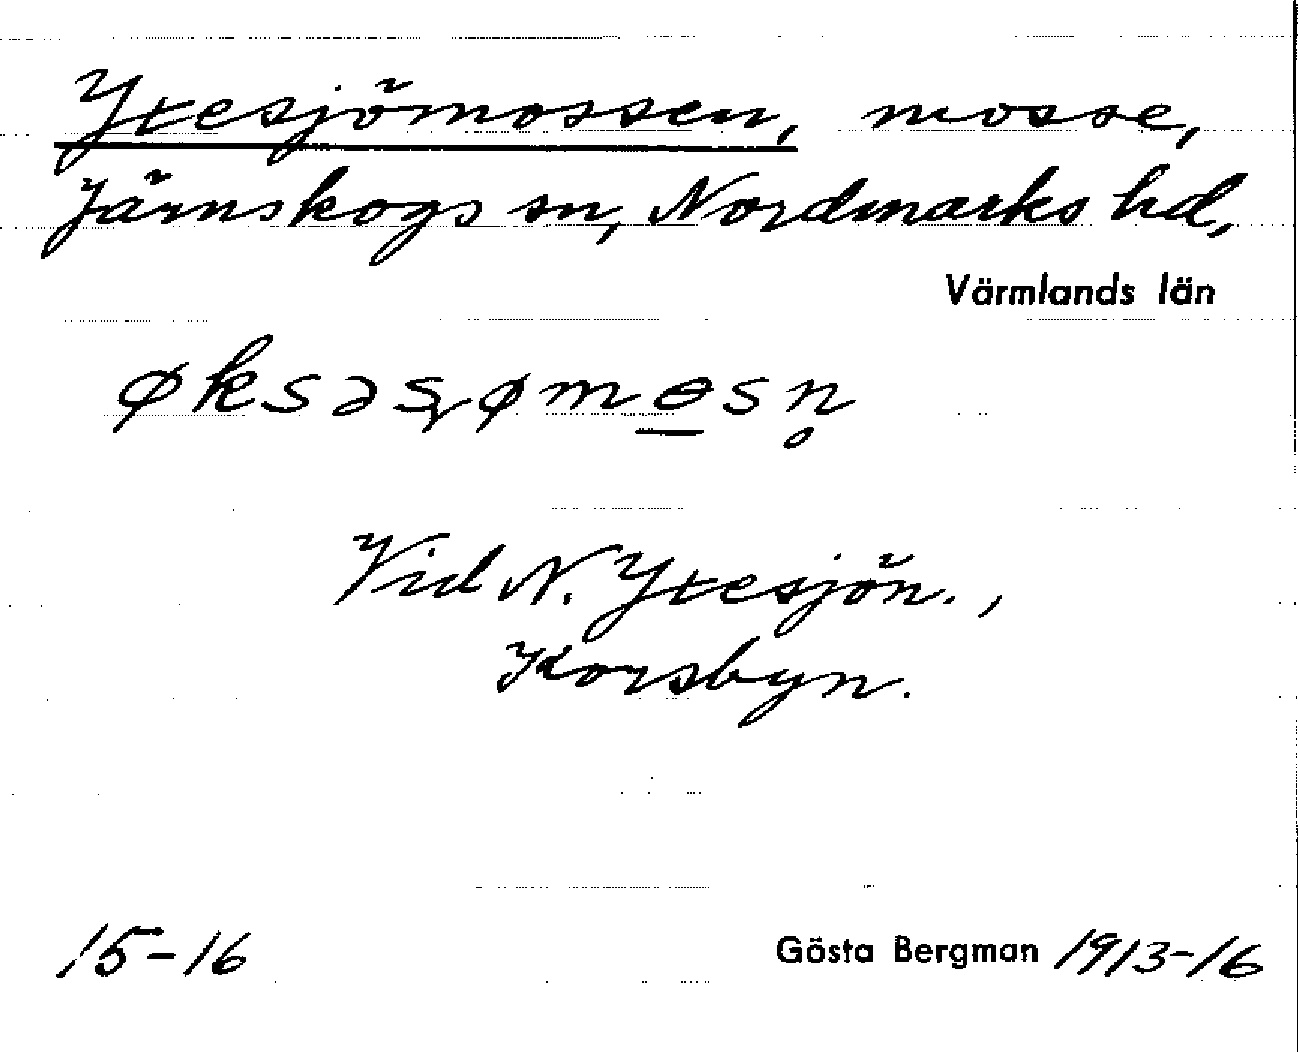 Yxesjömossen, mosse,
Järnskogs sn, Nordmarks hd,
Värmlands län
øksəʂømɵ̲sn̥
Vid N. Yxesjön.,
Korsbyn.
15-16 Gösta Bergman 1913-16